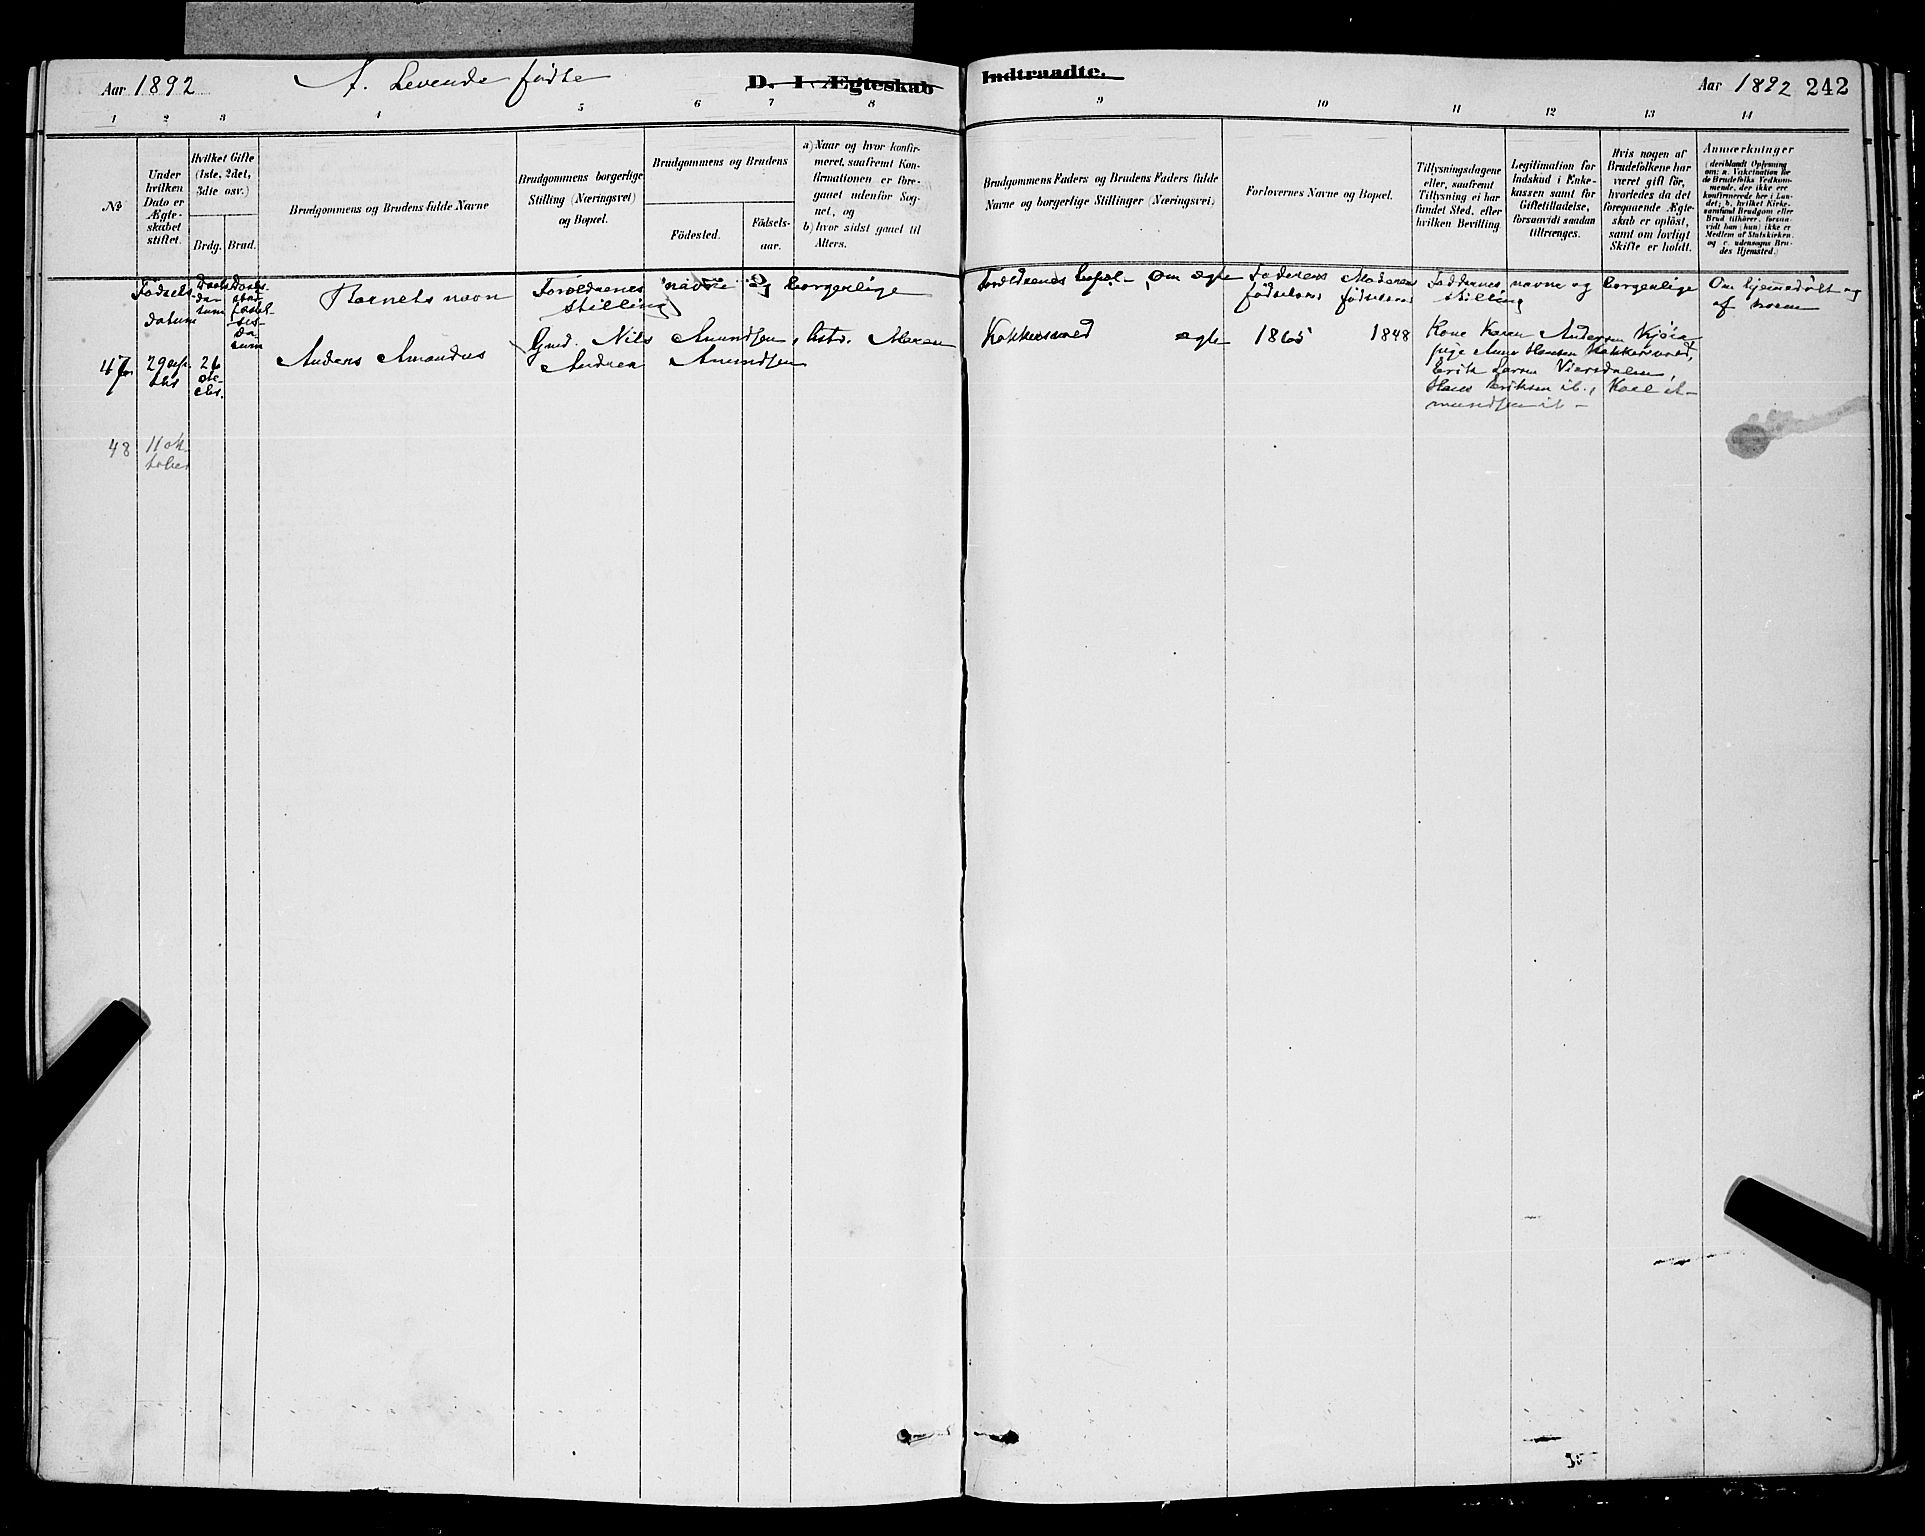 Aar 1892 A. Levende fødte D. I. Ægteskab Indtraadte. Aar 1892 242
1 2 3 4 5 6 7 8 9 10 11 12 13 14
No.
Under
hvilken
Dato er
Ægte-
skabet
stiftet.
Hvilket Gifte
(1ste, 2det,
3dte osv.)
Brdg. Brud.
Brudgommens og Brudens fulde Navne
Brudgommens borgerlige
Stilling (Næringsvei)
og Bopæl.
Brudgommens og Brudens
Födested.
Födsels-
aar.
a) Naar og hvor konfir-
meret, saafremt Kon-
firmationen er fore-
gaaet udenfor Sog-
net, og
b) hvor sidst gaaet til
Alters.
Brudgommens Faders og Brudens Faders fulde
Navne og borgerlige Stillinger (Næringsvei)
Forlovernes Navne og Bopæl.
Tillysningsdagene
eller, saafremt
Tillysning ei har
fundet Sted, efter
hvilken Bevilling
Legitimation for
Indskud i Enke-
kassen samt for
Giftetilladelse,
forsaavidt saadan
tiltrænges.
Hvis nogen af
Brudefolkene har
været gift för,
hvorledes da det
foregaaende Ægte-
skab er oplöst,
samt om lovligt
Skifte er holdt.
Anmærkninger
(deriblandt Oplysning
om: a. Vakcination for
de Brudefolks Vedkom-
mende, der ikke ere
konfirmerede her i Lan-
det; b. hvilket Kirke-
samfund Brudgom eller
Brud tilhörer, forsaa-
vidt han (hun) ikke er
Medlem af Statskirken,
og c. udensogns Bru-
des Hjemsted.)
Fødsels-
datum
Daabs-
da-
tum
Barnets navn
Forældrenes navne og borgerlige
stilling
Forældrenes bopæl Om ægte
Faderens
fødselsaar
Moderens
fødselsaar
Faddernes navne og borgerlige
stilling
Om hjemmedøbt og
af hvem
47
29
26
Anders Amandus
Gmd. Nils Amundsen, Hstr. Maren
Andrea Amundsen
Kokkersvold ægte 1865 1848
Kone Karen Andersen Kjöia
pige Anna Hansen Kokkersvold,
Erik Larsen Viersdalen,
Hans Eriksen ib.,
48
11 ok-
tober